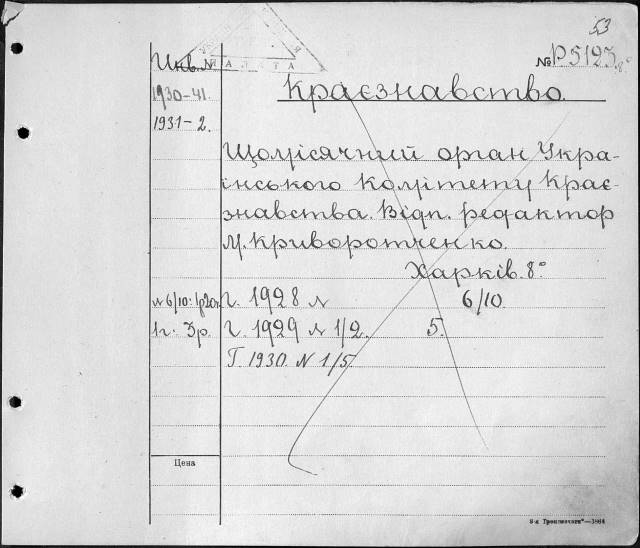 53
№ Р5123 8°
Инв. №
ПАЛАТА
1930-41.
1931-2.
Краєзнавство.
Щомісячний орган Укра-
їнського Комітету Крає-
знавства. Відп. редактор
М. Криворотченко.
Харків. 8°
№ 6/10: 1р20к
Г. 1928 № 6/10.
1г. 3р.
Г. 1929 № 1/2. 5.
Г. 1930. N 1/5.
Цена